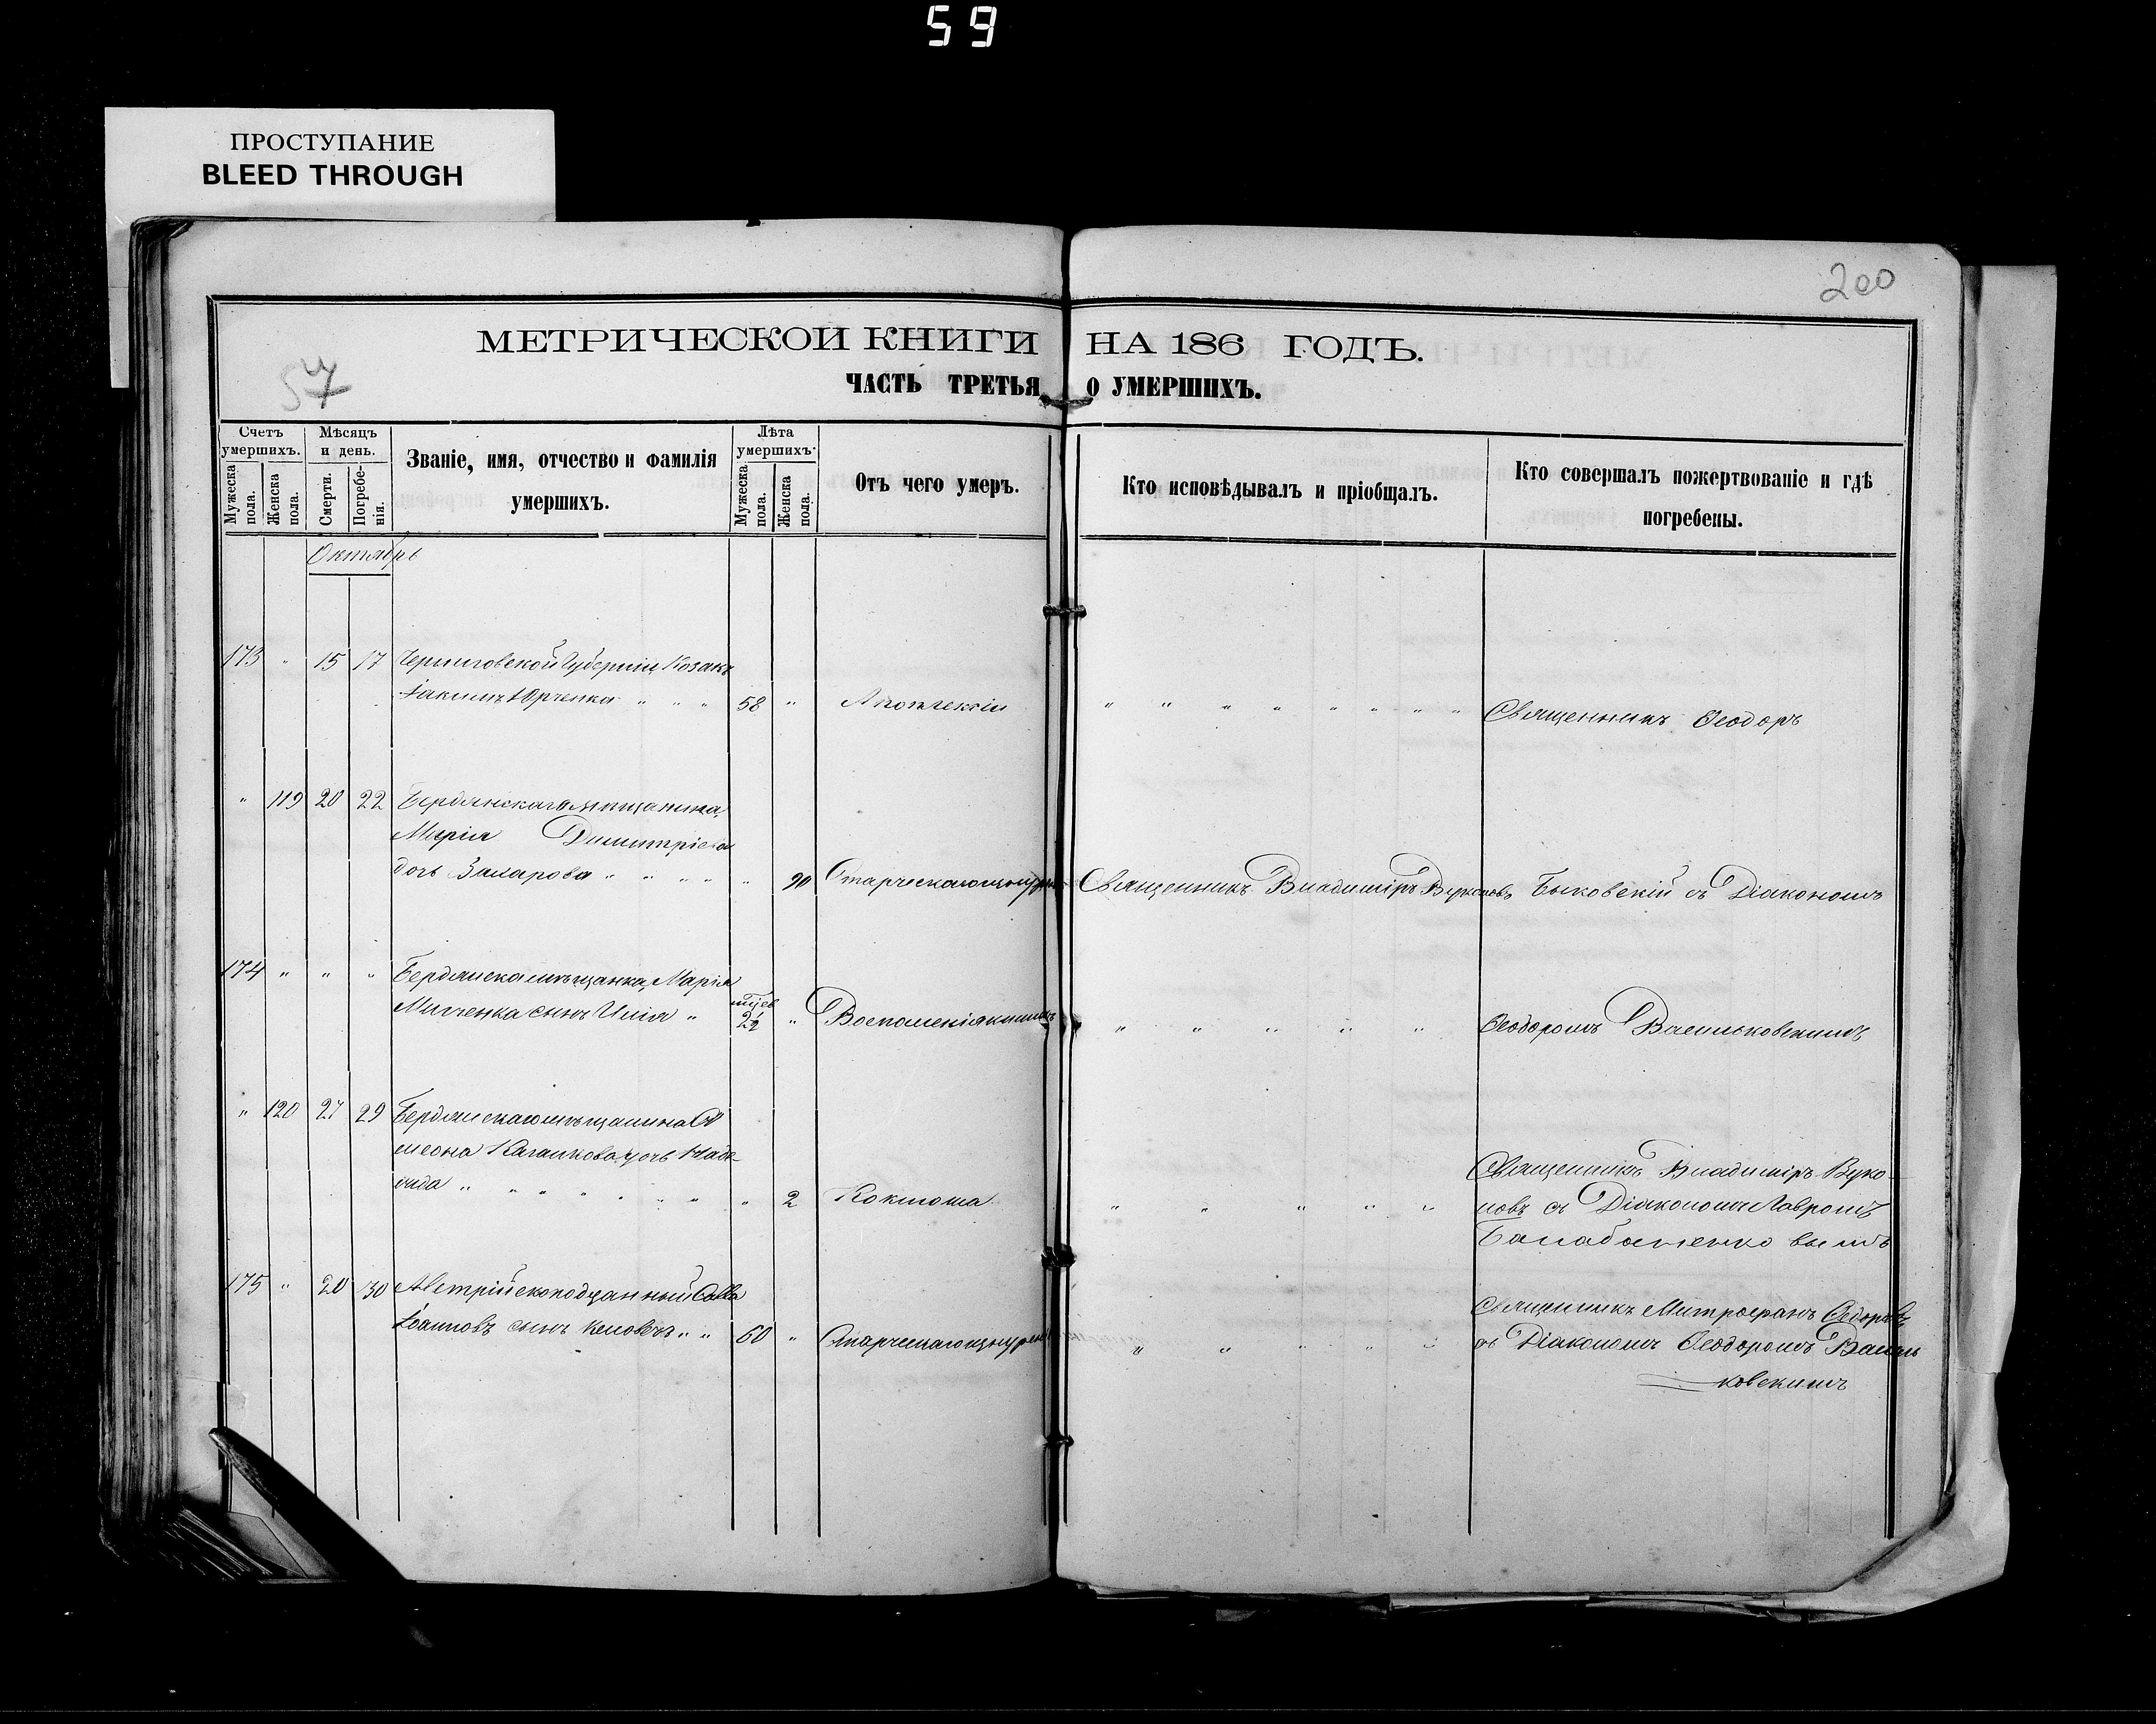 59
ПРОСТУПАНИЕ
BLEED THROUGH
200
57
МЕТРИЧЕСКОЙ КНИГИ НА 186 ГОДЪ.
ЧАСТЬ ТРЕТЬЯ, О УМЕРШИХЪ.
Счетъ умершихъ.
Мужеска пола.
Женска пола.
Мѣсяцъ и день.
Смерти.
Погребенія.
Званіе, имя, отчество и фамилія
умершихъ.
Лѣта умершихъ.
Мужеска пола.
Женска пола.
Отъ чего умеръ.
Кто исповѣдывалъ и пріобщалъ.
Кто совершалъ пожертвованіе и гдѣ
погребены.
Октябрь
173 " 15 17 Черниговской Губерніи Козакъ
Іакимъ Юрченка " " " 58 " Апоплексіи " " " " " " " " Священникъ Ѳеодоръ
" 119 20 22 Бердянскаго мѣщанина
Марія Димитріева
дочь Захарова " " " " " 90 Старческаго Священникъ Владиміръ Быковскій съ Діакономъ
174 " " " Бердянска мѣщанка Марія
сынъ Илія " 2½ " Воспаленія " " " " " Ѳеодоромъ Васильковскимъ
" 120 27 29 Бердянскаго мѣщанина Си
меона дочь Наде-
жда " " " " " " " " 2 Коклюша " " " " "
Священникъ Владиміръ Вуко-
ловъ съ Діакономъ Лавромъ
175 " 20 30 Австрійско подданный Савва
Іоанновъ сынъ " " 60 " Старческаго " " " " "
Священникъ Митрофанъ
съ Діакономъ Ѳеодоромъ Василь
ковскимъ